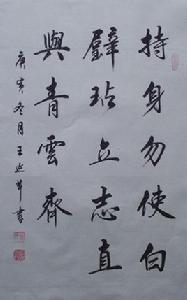 持身勿使白
璧玷立志直
與青雲齊
庚寅冬月王延年書